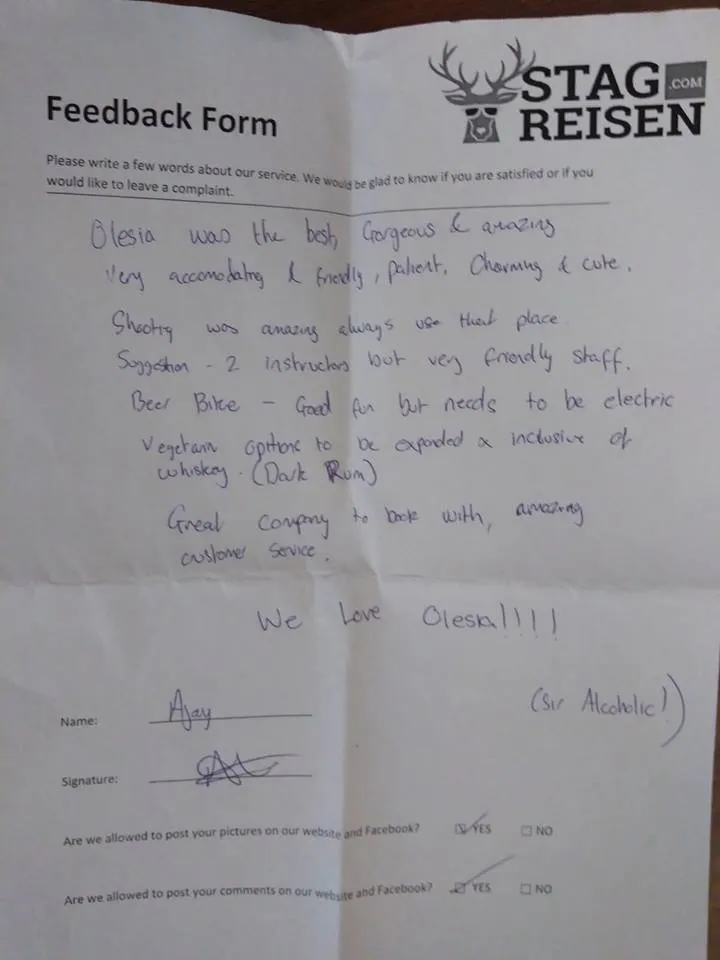 STAG .COM
REISEN
Feedback Form
Please write a few words about our service. We would be glad to know if you are satisfied or if you
would like to leave a complaint.
Olesia was the best, Gorgeous & amazing
Very accomodating & friendly, patient. Charming & cute.
Shooting was amazing always use that place.
Suggestion - 2 instructors but very friendly staff.
Beer Bike - Good fun but needs to be electric
Vegetarian options to be expanded & inclusive of
whiskey. (Dark Rum)
Great company to book with, amazing
customer service.
We Love Olesia!!!!
(Sir Alcoholic!)
Name: Ajay
Signature:
Are we allowed to post your pictures on our website and Facebook? YES NO
Are we allowed to post your comments on our website and Facebook? YES NO